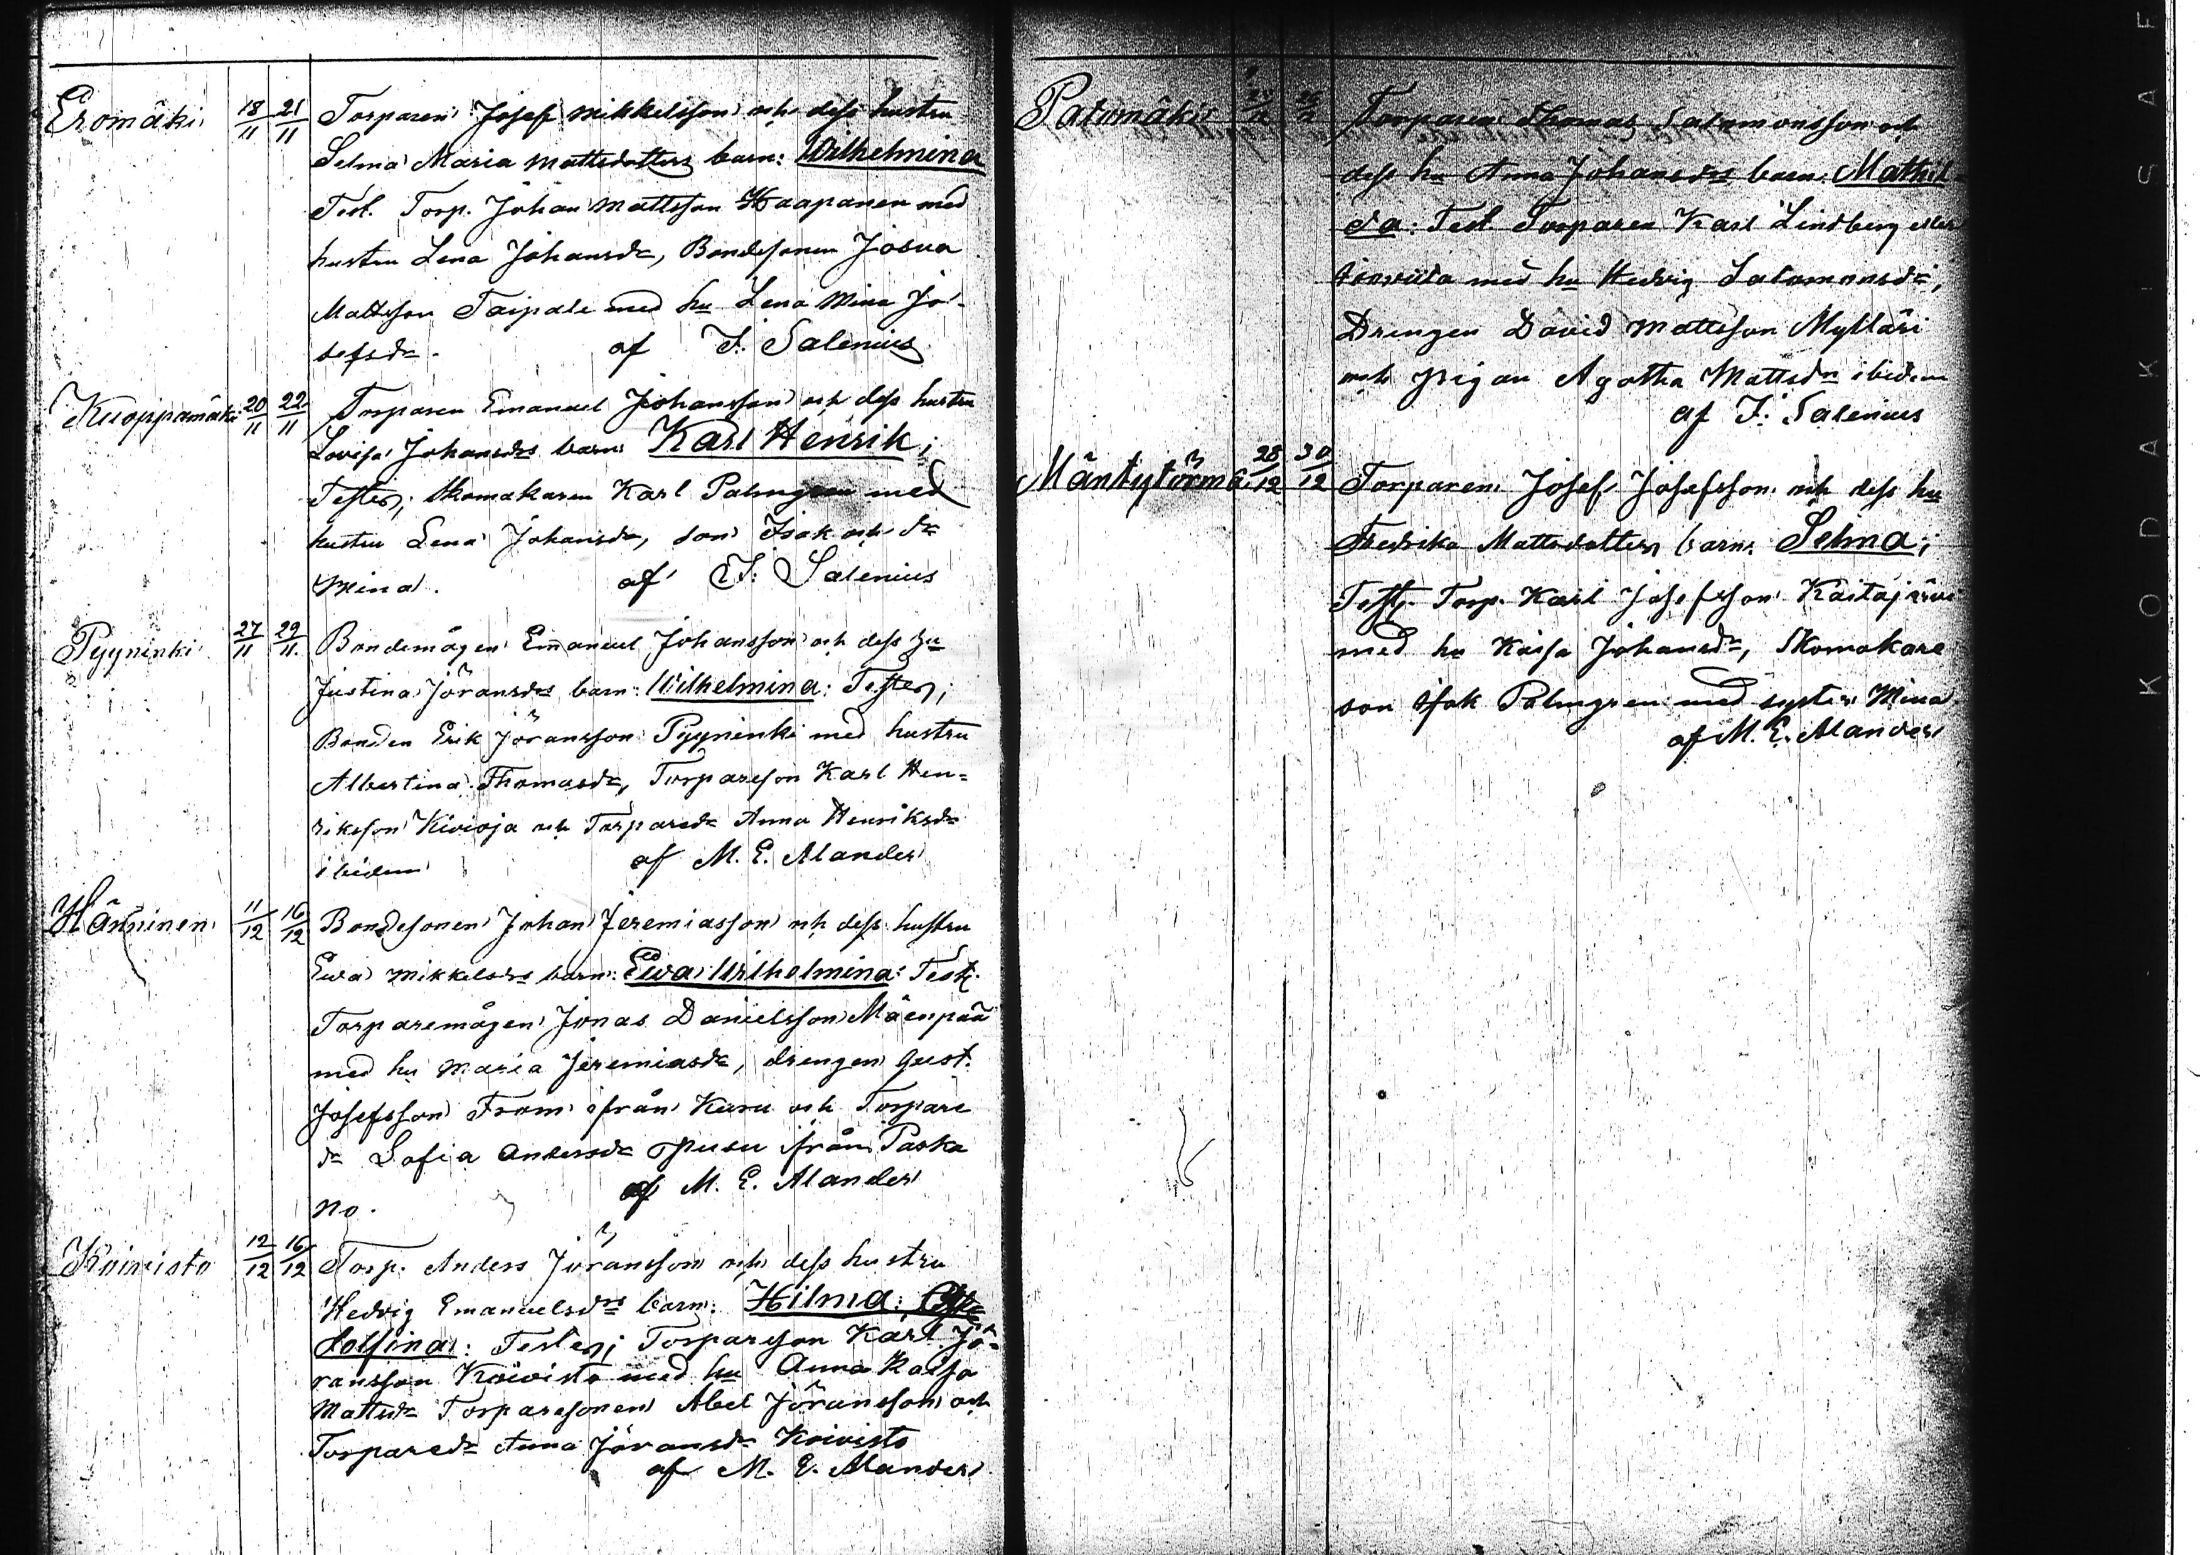 Eromäki 18/11 21/11 Torparen Josef Mikkelsson och dess hustru
Selma Maria Mattsdotters barn: Wilhelmina
Test. Torp. Johan Mattsson Haapanen med
hustru Lena Johansdr, Bondesonen Josua
Mattsson Taipale med hu Lena Mina Jo-
sefsdr. af F. Salenius
Kuoppamäki 20/11 22/11 Torparen Emanuel Johansson och dess hustru
Lovisa Johansdrs barn: Karl Henrik;
Testes; Skomakaren Karl Palmgren med
hustru Lena Johansdr, son Isak och dr
Mina. af F. Salenius
Pyyninki 27/11 29/11 Bondemågen Emanuel Johansson och dess hu
Justina Jöransdrs barn: Wilhelmina: Testes;
Bonden Erik Jöransson Pyyninki med hustru
Albertina Thomasdr, Torpareson Karl Hen-
riksson Kivioja och Torparedr Anna Henriksdr
ibidem af M. E. Alander
Hänninen 11/12 16/12 Bondesonen Johan Jeremiasson och dess hustru
Eva Mikkelsdrs barn: Eva Wilhelmina: Test.
Torparemågen Jonas Danielsson Mäenpää
med hu Maria Jeremiasdr, drengen Gust.
Josefsson From ifrån Kuru och Torpare
dr Sofia Andersdr Pusu ifrån Paska
no. af M. E. Alander
Koivisto 12/12 16/12 Torp. Anders Jöransson och dess hustru
Hedvig Emanuelsdrs barn: Hilma:
Dolfina: Testes; Torpareson Karl Jö-
ransson Koivisto med hu Anna Kaisa
Mattsdr Torparesonen Abel Jöransson och
Torparedr Anna Jöransdr Koivisto
af M. E. Alander
Patomäki Torparen Thomas Salomonsson och
dess hu Anna Johansdrs barn: Mathil-
da: Test. Torparen Karl Lindberg eller
med hu Hedvig Salomonsdr,
Drengen David Mattsson Mylläri
och pigan Agatha Mattsdr ibidem
af F. Salenius
Mäntytörmä 28/12 30/12 Torparen Josef Josefsson och dess hu
Fredrika Mattsdotters barn: Selma;
Test. Torp. Karl Josefsson Kaitajärvi
med hu Kaisa Johansdr, Skomakare
son Isak Palmgren med syster Mina
af M. E. Alander
KODAK SAF